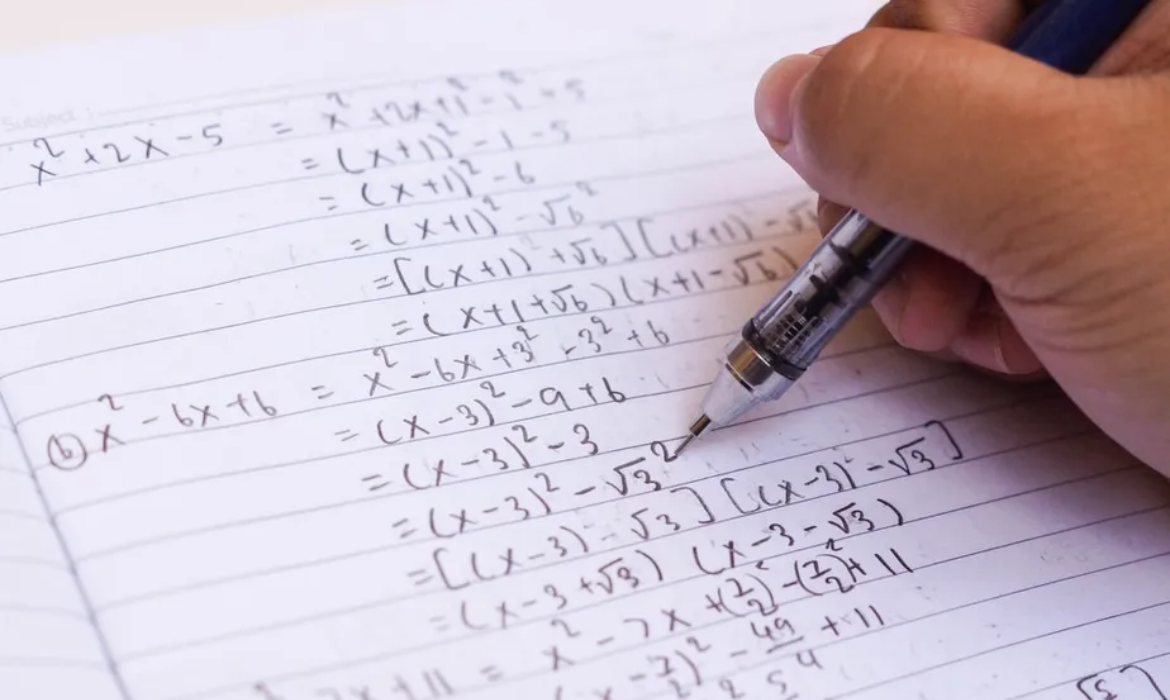 Subject :
x² + 2x - 5 = x² + 2x + 1² - 1² - 5
= (x+1)² - 1 - 5
= (x+1)² - 6
= (x+1)² - √6²
= [(x+1) + √6] [(x+1) - √6
= (x+1+√6) (x+1-√6)
(b) x² - 6x + 6 = x² - 6x + 3² - 3² + 6
= (x-3)² - 9 + 6
= (x-3)² - 3
= (x-3)² - √3²
= [(x-3) - √3] [(x-3) - √3]
= (x-3+√3) (x-3-√3)
7x + 11 = x² - 7x + (7/2)² - (7/2)² + 11
(x - 7/2)² - 49/4 + 11
5